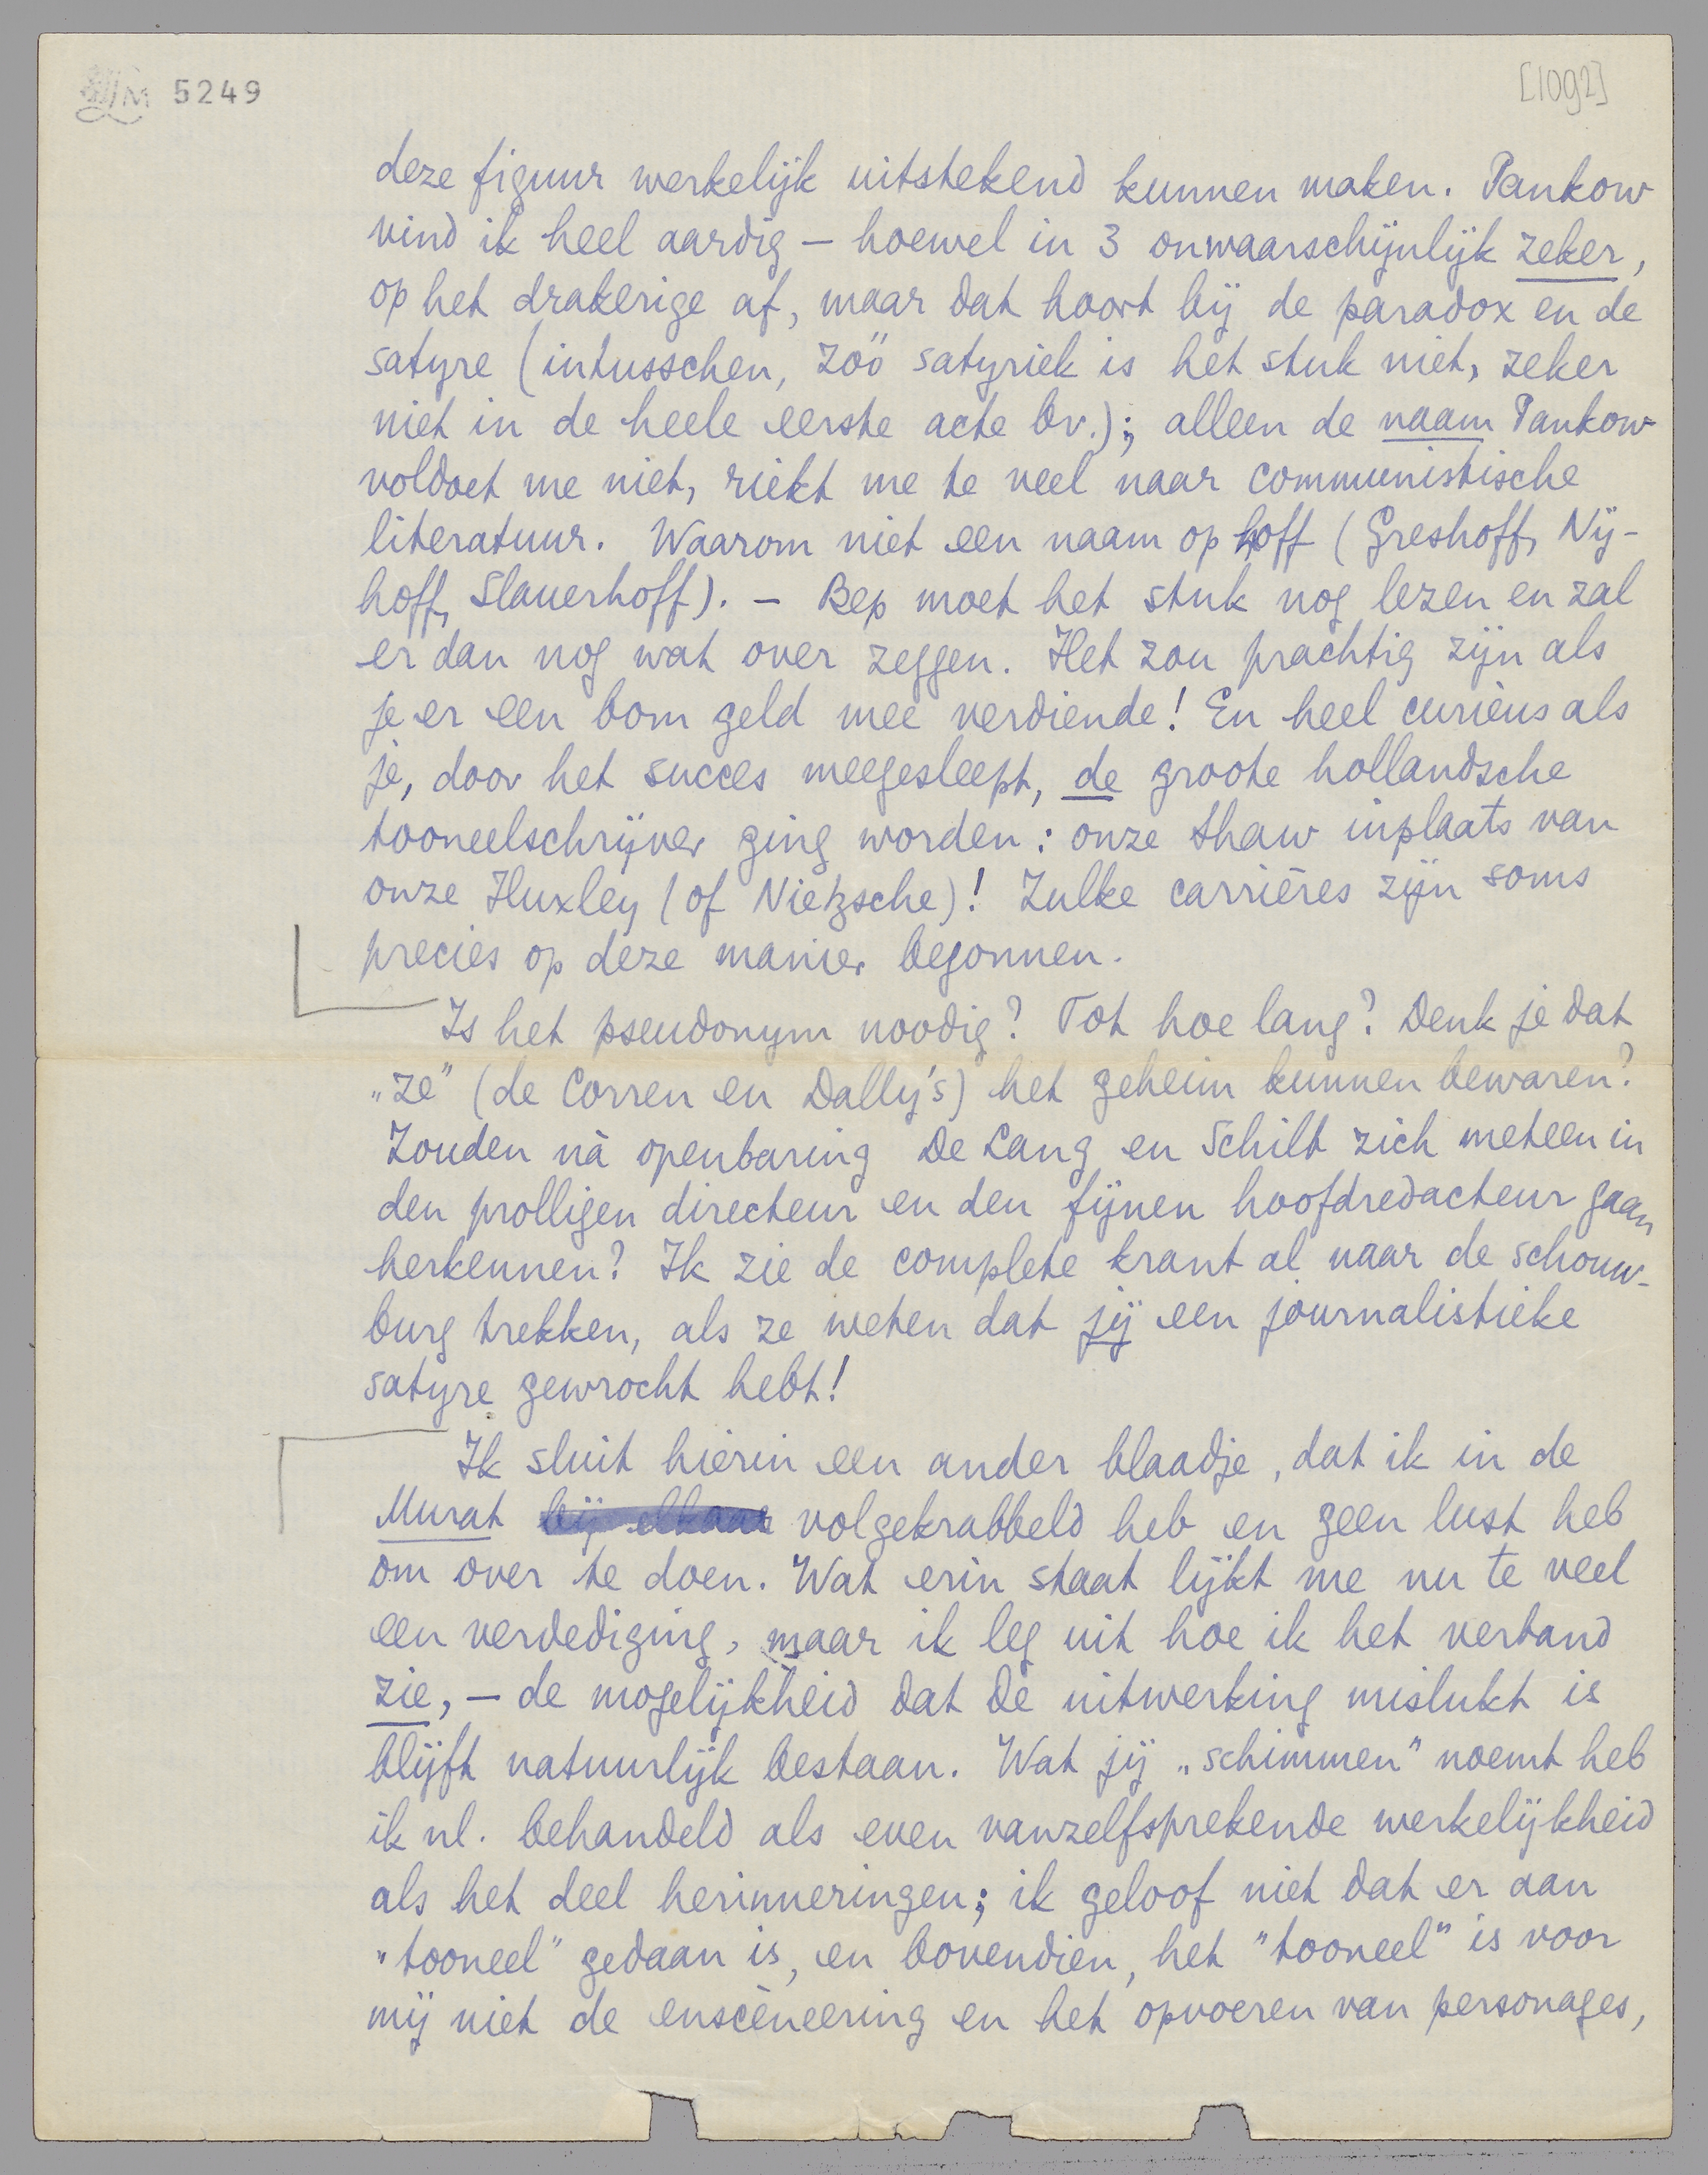 LM 5249
[1092]
deze figuur werkelijk uitstekend kunnen maken. Pankow
vind ik heel aardig – hoewel in 3 onwaarschijnlijk zeker,
op het drakerige af, maar dat hoort bij de paradox en de
satyre (intusschen, zóó satyriek is het stuk niet, zeker
niet in de heele eerste acte bv.); alleen de naam Pankow
voldoet me niet, riekt me te veel naar communistische
literatuur. Waarom niet een naam op hoff (Greshoff, Nij-
hoff, Slauerhoff). – Bep moet het stuk nog lezen en zal
er dan nog wat over zeggen. Het zou prachtig zijn als
je er een bom geld mee verdiende! En heel curieus als
je, door het succes meegesleept, de groote hollandsche
tooneelschrijver ging worden: onze Shaw inplaats van
onze Huxley (of Nietzsche)! Zulke carrières zijn soms
precies op deze manier begonnen.
Is het pseudonym noodig? Tot hoe lang? Denk je dat
„ze” (de Corren en Dally's) het geheim kunnen bewaren?
Zouden nà openbaring De Lang en Schilt zich meteen in
den prolligen directeur en den fijnen hoofdredacteur gaan
herkennen? Ik zie de complete krant al naar de schouw-
burg trekken, als ze weten dat jij een journalistieke
satyre gewrocht hebt!
Ik sluit hierin een ander blaadje, dat ik in de
Murat bij elkaar volgekrabbeld heb en geen lust heb
om over te doen. Wat erin staat lijkt me nu te veel
een verdediging, maar ik leg uit hoe ik het verband
zie, – de mogelijkheid dat de uitwerking mislukt is
blijft natuurlijk bestaan. Wat jij „schimmen” noemt heb
ik nl. behandeld als even vanzelfsprekende werkelijkheid
als het deel herinneringen; ik geloof niet dat er aan
„tooneel” gedaan is, en bovendien, het "tooneel" is voor
mij niet de enscèneering en het opvoeren van personages,